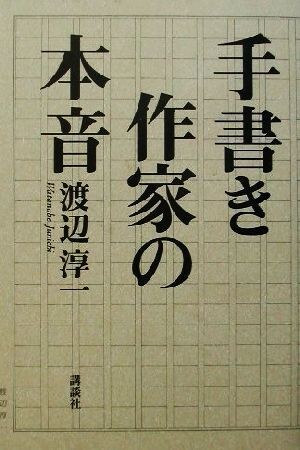 手書き
作家の
本音
渡辺淳一
Watanabe Junichi
講談社
渡辺淳